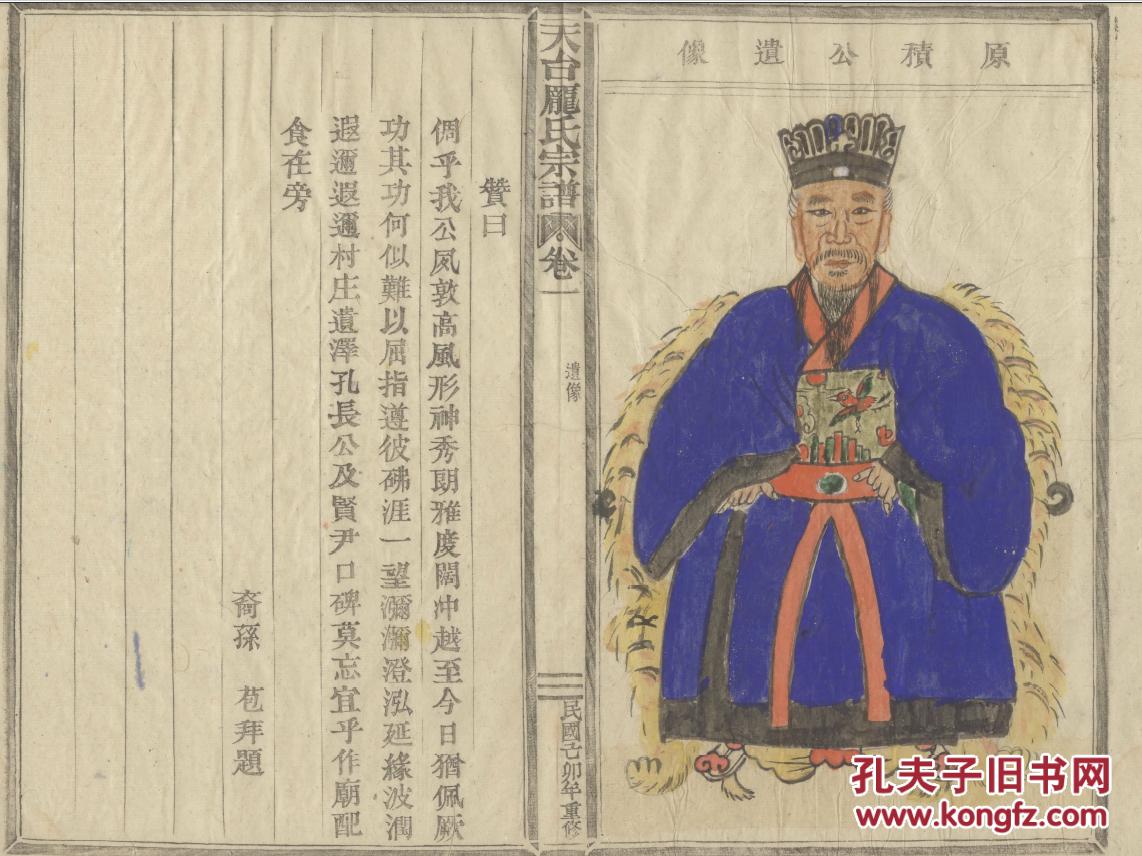 原積公遺像
天台龐氏宗譜 卷一
遺像
民國己卯年重修
贊曰
倜乎我公夙敦高風形神秀朗雅度闊沖越至今日猶佩厥
功其功何似難以屈指遵彼砩涯一望瀰瀰澄泓延緣波潤
遐邇遐邇村庄遺澤孔長公及賢尹口碑莫忘宜乎作廟配
食在旁
裔孫 苞拜題
孔夫子旧书网
www.kongfz.com